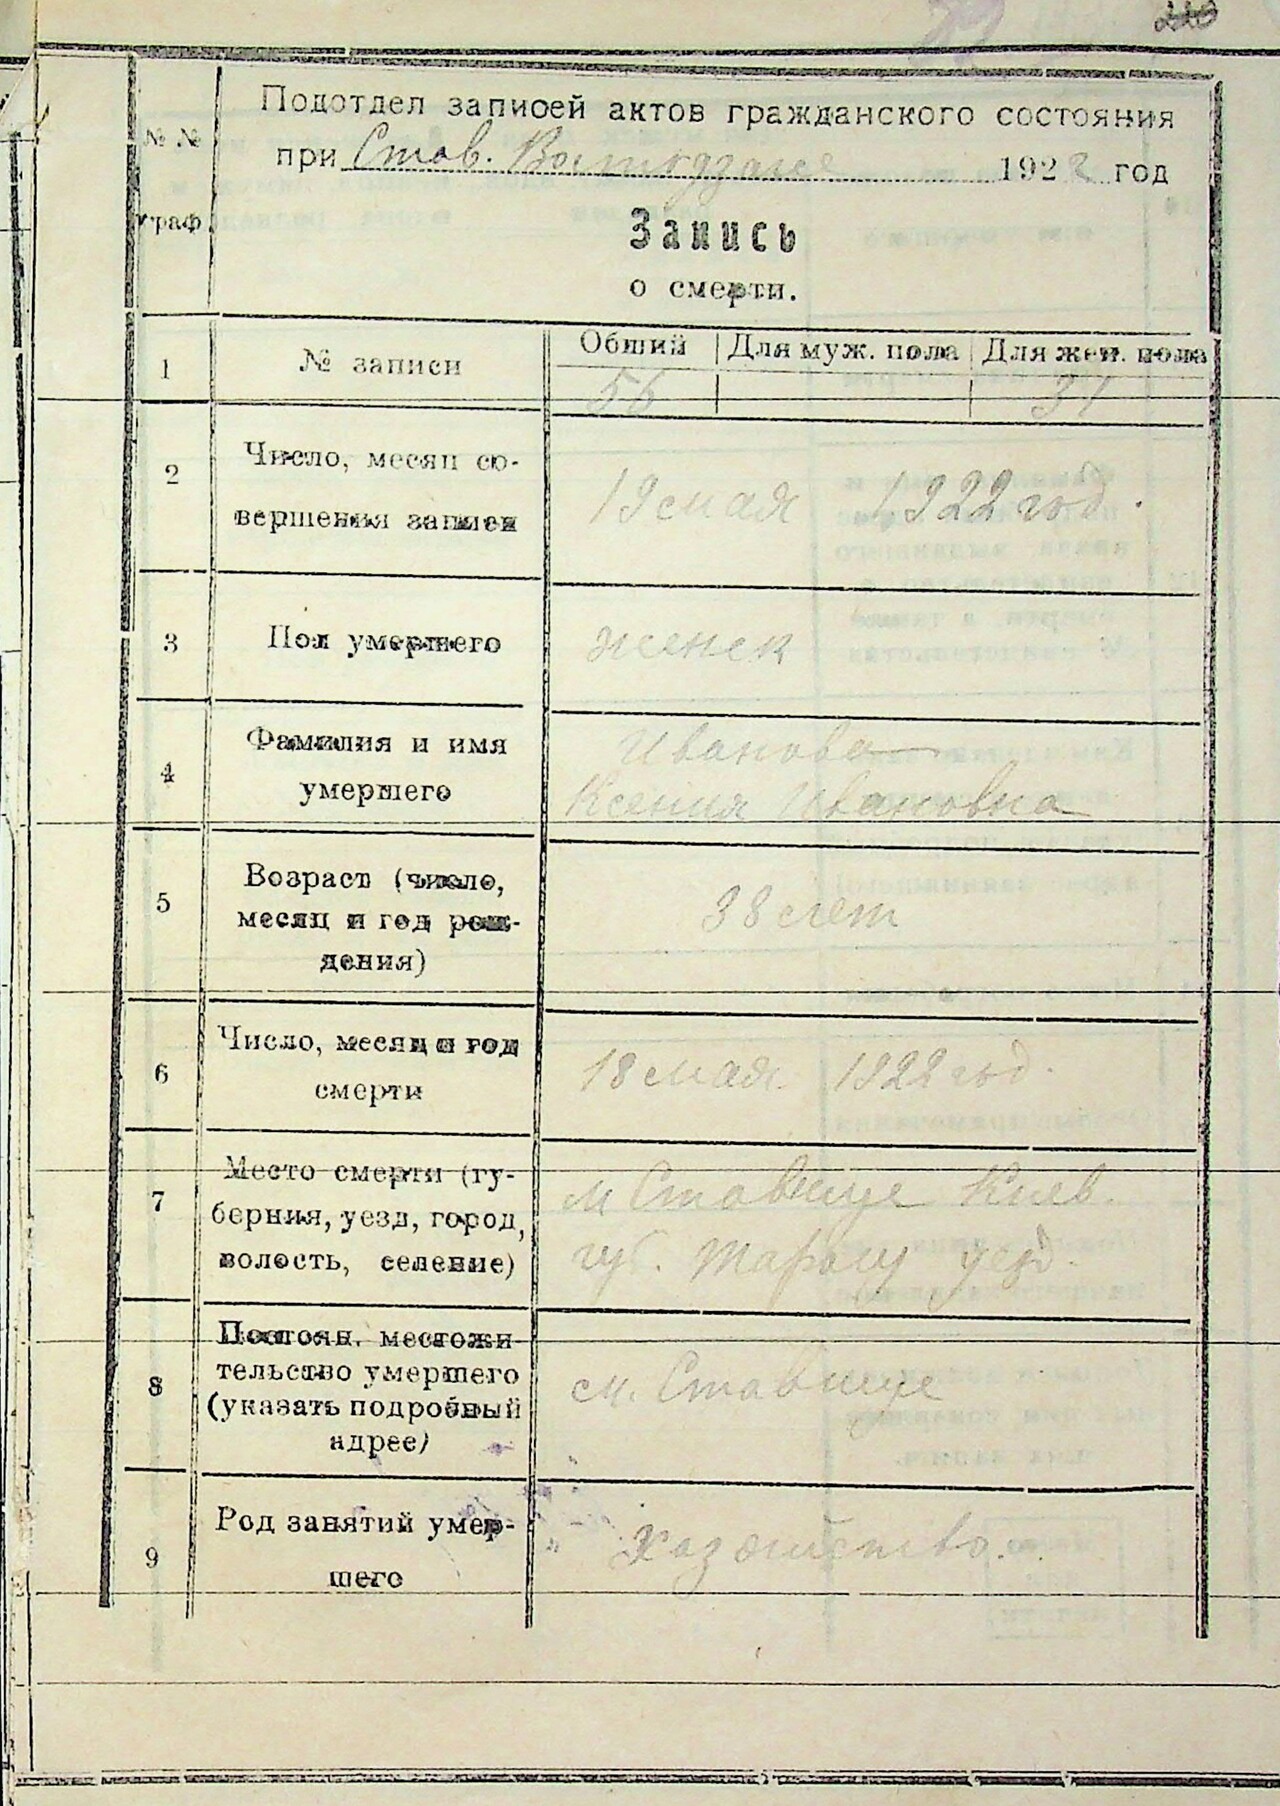 Подотдел записей актов гражданского состояния
при Став. 1922 год
№ №
граф
Запись
о смерти.
1
№ записи
Общий Для муж. пола Для жен. пола
56 31
2
Число, месяц со-
вершения записи
19 мая 1922 год.
3
Пол умершего
женск
4
Фамилия и имя
умершего
Иванова
Ксения Ивановна
5
Возраст (число,
месяц и год рож-
дения)
38 лет
6
Число, месяц и год
смерти
18 мая 1922 год.
7
Место смерти (гу-
берния, уезд, город,
волость, селение)
м Ставище Киев.
губ. Таращ уезд.
8
Постоян. местожи-
тельство умершего
(указать подробный
адрес)
м. Ставище
9
Род занятий умер-
шего
Хозяйство.